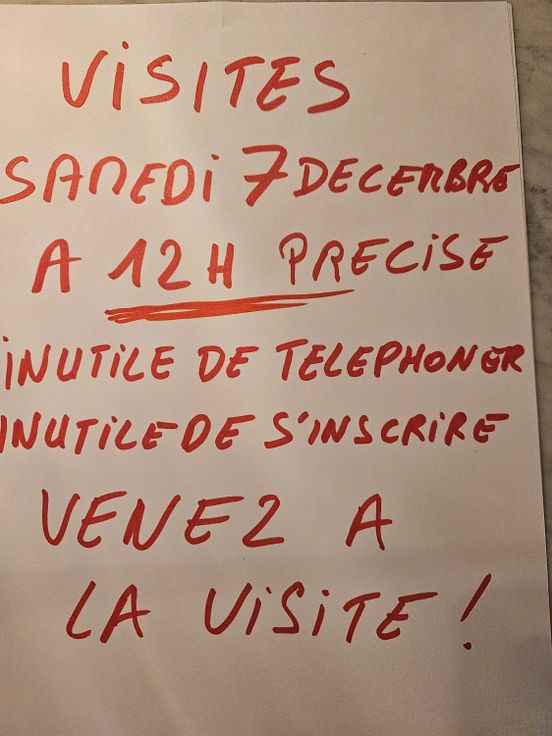 VISITES
SAMEDI 7 DECEMBRE
A 12H PRECISE
INUTILE DE TELEPHONER
INUTILE DE S'INSCRIRE
VENEZ A
LA VISITE !